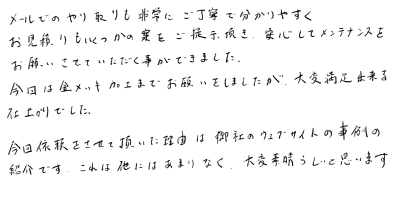 メールでのやり取りも非常にご丁寧で分かりやすく
お見積りもいくつかの案をご提示頂き、安心してメンテナンスを
お願いさせていただく事ができました。
今回は金メッキ加工までお願いをしましたが、大変満足出来る
仕上がりでした。
今回依頼をさせて頂いた理由は御社のウェブサイトの事例の
紹介です。これは他にはあまりなく、大変素晴らしいと思います